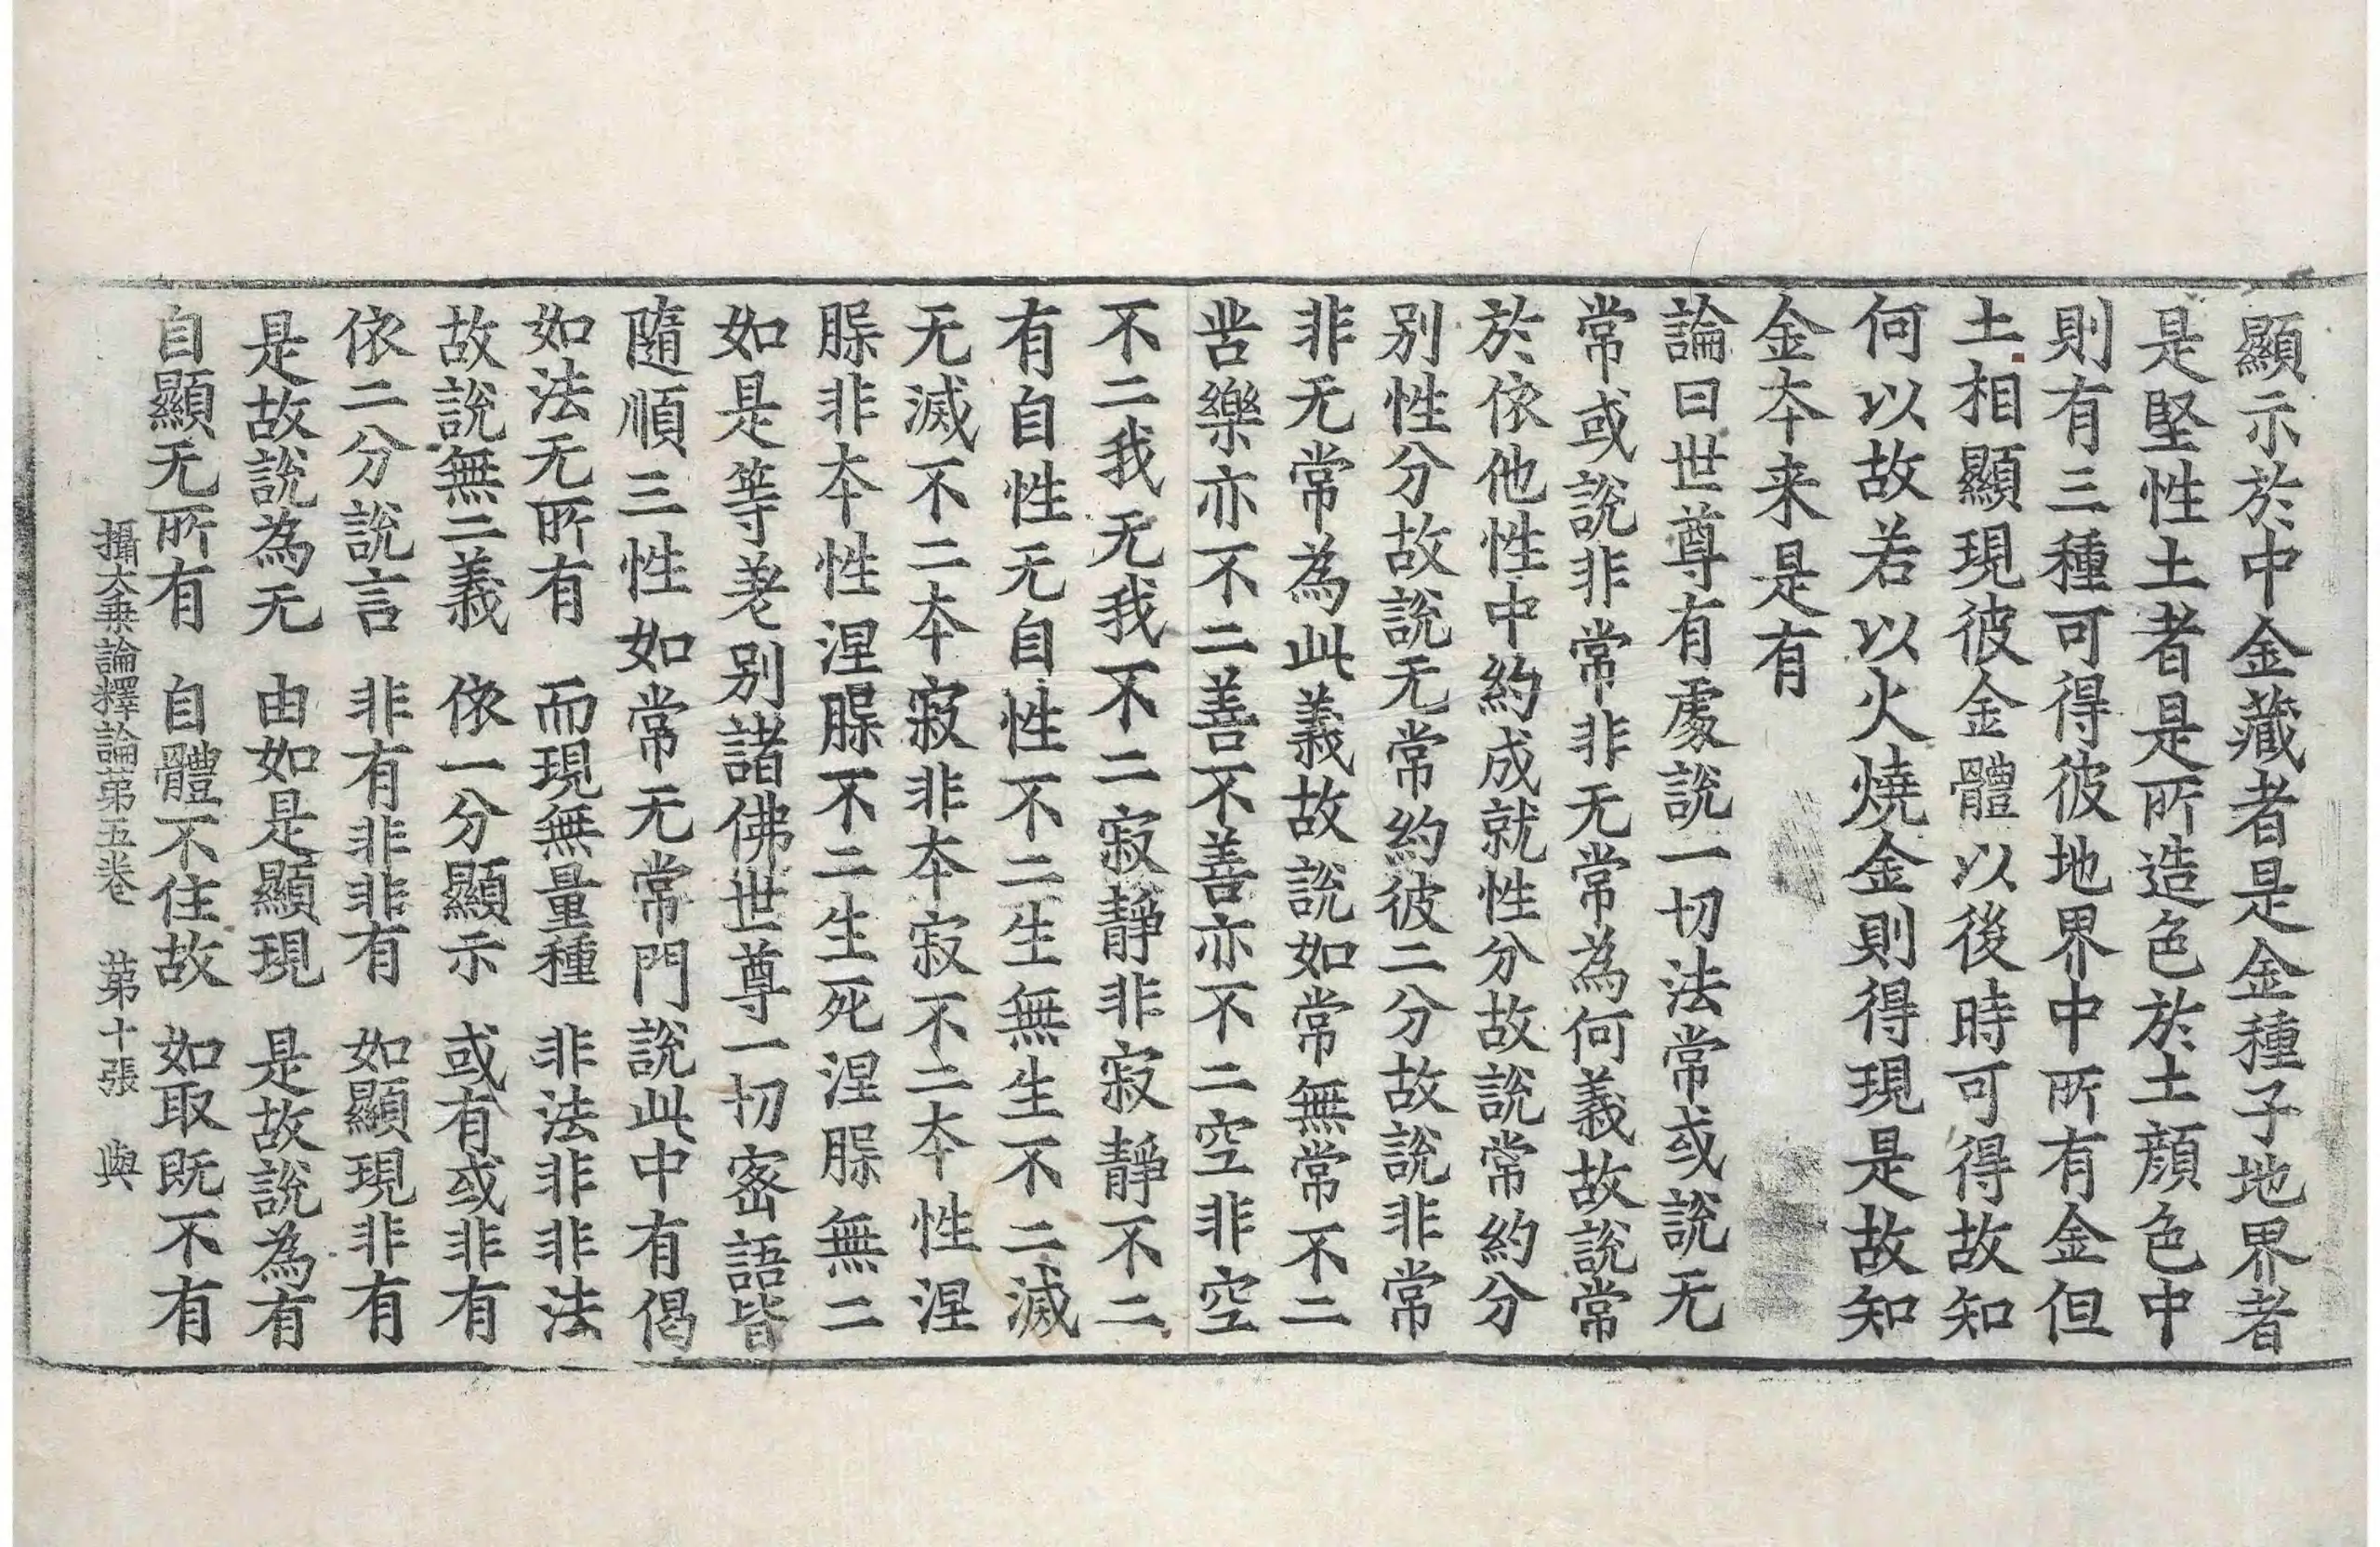 顯示於中金藏者是金種子地界者
是堅性土者是所造色於土顔色中
則有三種可得彼地界中所有金但
土相顯現彼金體以後時可得故知
何以故若以火燒金則得現是故知
金夲来是有
論曰世尊有處說一切法常或說无
常或說非常非无常為何義故說常
於依他性中約成就性分故說常約分
别性分故說无常約彼二分故說非常
非无常為此義故說如常無常不二
苦樂亦不二善不善亦不二空非空
不二我无我不二寂靜非寂靜不二
有自性无自性不二生無生不二滅
无滅不二夲寂非夲寂不二夲性涅
脲非夲性涅脲不二生死涅脲無二
如是等差别諸佛世尊一切密語皆
隨順三性如常无常門說此中有偈
如法无所有　而現無量種　非法非非法
故說無二義　依一分顯示　或有或非有
依二分說言　非有非非有　如顯現非有
是故說為无　由如是顯現　是故說為有
自顯无所有　自體不住故　如取既不有
攝大乗論釋論苐五卷　苐十張　與